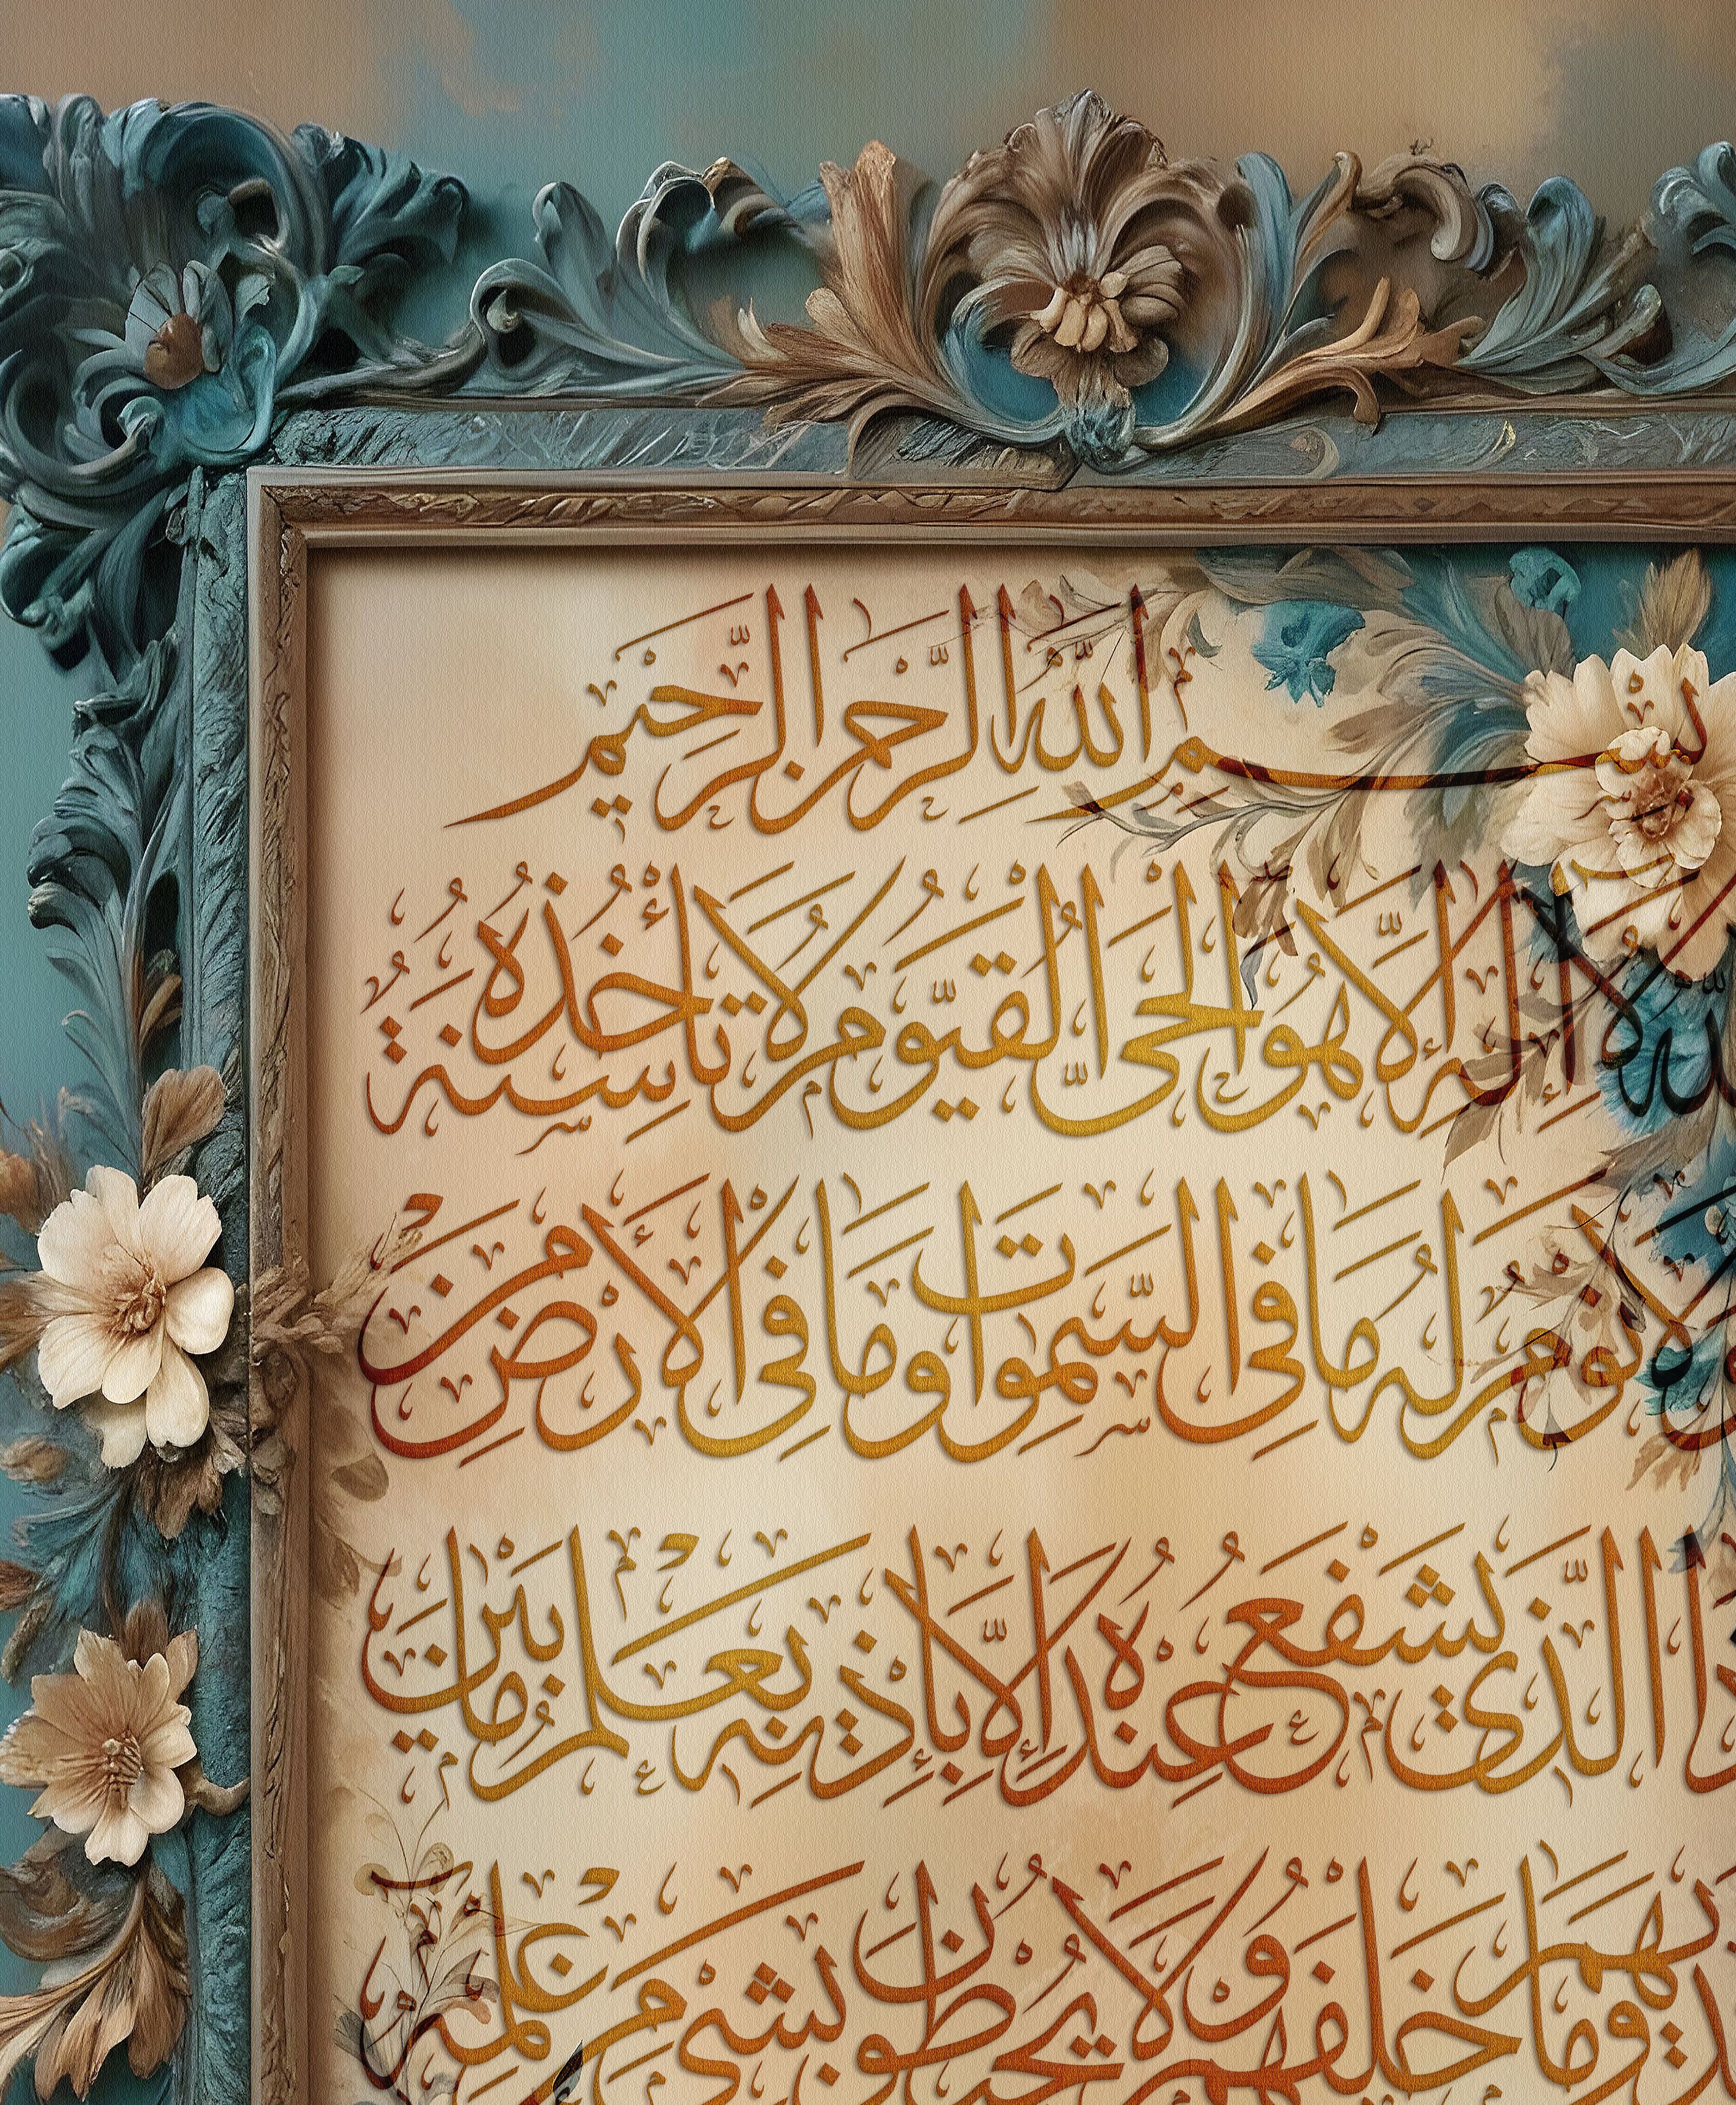 بِسْمِ اللّٰهِ الرَّحْمٰنِ الرَّحِيْمِ
اللّٰهُ لَا إِلٰهَ إِلَّا هُوَ الْحَيُّ الْقَيُّومُ لَا تَأْخُذُهُ سِنَةٌ
وَلَا نَوْمٌ لَهُ مَا فِي السَّمٰوَاتِ وَمَا فِي الْأَرْضِ مَنْ
ذَا الَّذِي يَشْفَعُ عِنْدَهُ إِلَّا بِإِذْنِهِ يَعْلَمُ مَا بَيْنَ
أَيْدِيهِمْ وَمَا خَلْفَهُمْ وَلَا يُحِيطُونَ بِشَيْءٍ مِنْ عِلْمِهِ